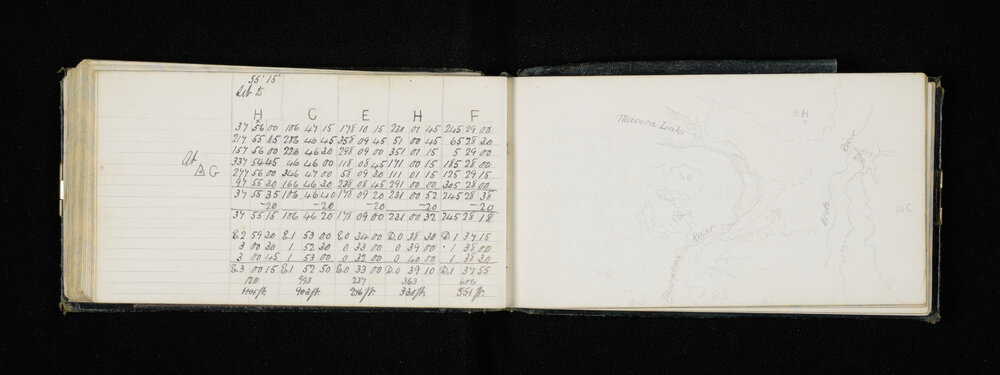 55' 15"
H C E H F
37 56 00 106 47 15 178 10 15 231 01 45 245 29 00
217 55 15 286 46 45 358 09 45 51 00 45 65 28 30
157 56 00 226 46 30 298 09 00 351 01 15 5 29 00
337 54 45 46 46 00 118 08 45 171 00 15 185 28 00
277 56 00 346 47 00 58 09 30 111 01 15 125 29 15
97 55 30 166 46 30 238 08 45 291 00 00 305 28 00
37 55 35 106 46 40 178 09 20 231 00 52 245 28 38
-20 -20 -20 -20 -20
37 55 15 106 46 20 178 09 00 231 00 32 245 28 18
At △ G
E.2 59 30 E.1 53 00 E.0 34 00 D.0 38 30 D.1 37 15
3 00 30 1 52 30 0 33 00 0 39 00 1 38 00
3 00 45 1 53 00 0 32 00 0 40 00 1 38 30
E.3 00 15 E.1 52 50 E.0 33 00 D.0 39 10 D.1 37 55
1211 993 363 606
903 ft. 216 ft. 330 ft. 551 ft.
H
Mavora Lake
River
C
River